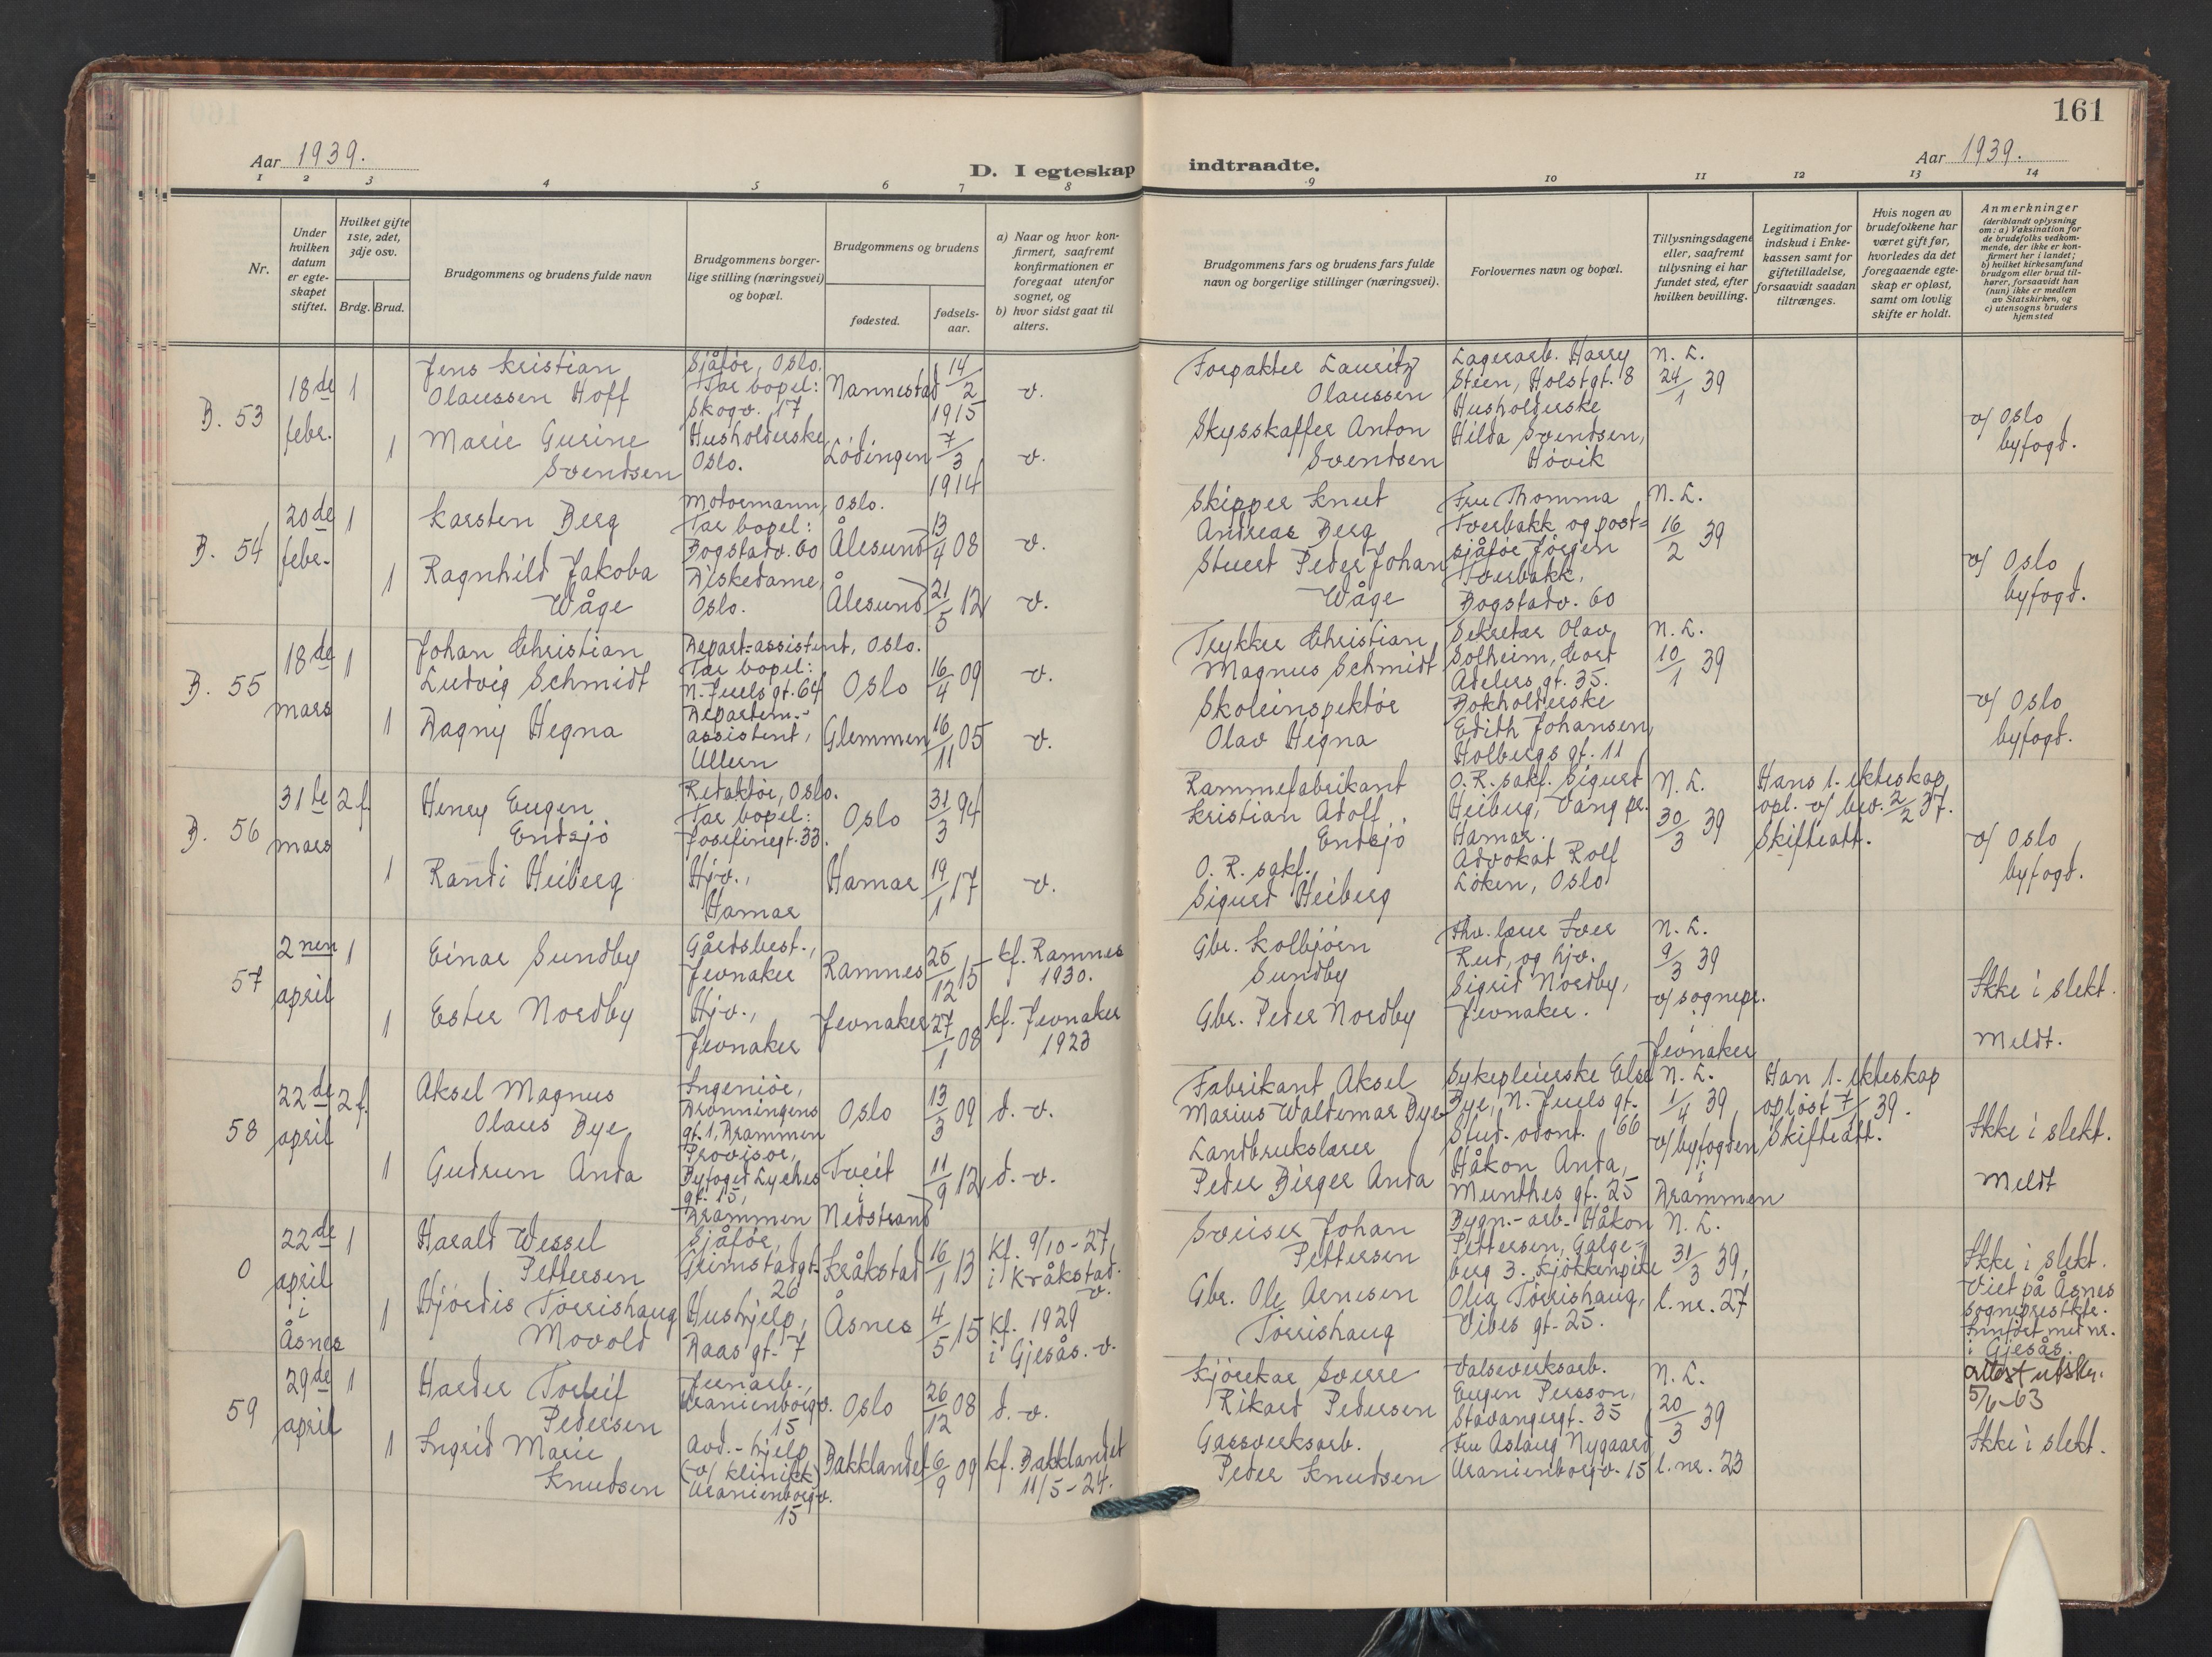 161
Aar 1939.
D. I egteskap indtraadte.
Aar 1939.
1 2 3 4 5 6 7 8 9 10 11 12 13 14
Nr.
Under hvilken datum er egteskapet stiftet.
Hvilket gifte 1ste, 2det, 3dje osv.
Brdg. Brud.
Brudgommens og brudens fulde navn
Brudgommens borgerlige stilling (næringsvei) og bopæl.
Brudgommens og brudens
fødested.
fødsels-aar.
a) Naar og hvor konfirmert, saafremt konfirmationen er foregaat utenfor sognet, og
b) hvor sidst gaat til alters.
Brudgommens fars og brudens fars fulde navn og borgerlige stillinger (næringsvei).
Forlovernes navn og bopæl.
Tillysningsdagene eller, saafremt tillysning ei har fundet sted, efter hvilken bevilling.
Legitimation for indskud i Enkekassen samt for giftetilladelse, forsaavidt saadan tiltrænges.
Hvis nogen av brudefolkene har været gift før, hvorledes da det foregaaende egteskap er opløst, samt om lovlig skifte er holdt.
Anmerkninger
(deriblandt oplysning om: a) Vaksination for de brudefolks vedkommende, der ikke er konfirmert her i landet; b) hvilket kirkesamfund brudgom eller brud tilhører, forsaavidt han (hun) ikke er medlem av Statskirken, og c) utensogns bruders hjemsted
B. 53
18de febr.
1
Jens Kristian Olaussen Hoff
Sjåfør, Oslo. Før bopel: Skogv. 17
Nannestad
14/2 1915
v.
Forpakter Lauritz Olaussen
Lagerarb. Harry Steen, Holstgt. 8
N. L. 24/1 39
1
Marie Gurine Svendsen
Husholderske Oslo.
Lødingen
7/3 1914
v.
Skysskaffer Anton Svendsen
Husholderske Hilda Svendsen, Høvik
v/ Oslo byfogd.
B. 54
20de febr.
1
Karsten Berg
Motormann, Oslo. Før bopel: Bogstadv. 60
Ålesund
13/4 08
v.
Skipper Knut Andreas Berg
Fru Thomma Tverbakk og post=sjåfør Jørgen Tverbakk, Bogstadv. 60
N. L. 16/2 39
1
Ragnhild Jakoba Wåge
Diskedame, Oslo.
Ålesund
21/5 12
v.
Stuert Peder Johan Wåge
v/ Oslo byfogd.
B. 55
18de mars
1
Johan Christian Ludvig Schmidt
Depart=assistent, Oslo. Før bopel: N. Juels gt. 64
Oslo
16/4 09
v.
Trykker Christian Magnus Schmidt
Sekretær Olav Solheim, Cort Adelers gt. 35.
N. L. 10/1 39
1
Dagny Hegna
Departem.-assistent, Ullern
Glemmen
16/11 05
v.
Skoleinspektør Olav Hegna
Bokholderske Edith Johansen, Holbergs gt. 11
v/ Oslo byfogd.
B. 56
31te mars
2 f.
Henry Eugen Endsjö
Redaktør, Oslo. Før bopel: Josefinegt. 33.
Oslo
31/3 94
Rammefabrikant Kristian Adolf Endsjö
O. R. sakf. Sigurd Heiberg, Vang pr. Hamar.
N. L. 30/3 39
Hans 1. ekteskap opl. v/ bev. 2/2 37. Skifteatt.
1
Randi Heiberg
Hjv., Hamar
Hamar
19/1 17
v.
O. R. sakf. Sigurd Heiberg
Advokat Rolf Løken, Oslo
v/ Oslo byfogd.
57
2nen april
1
Einar Sundby
Gårdsbest., Jevnaker
Ramnes
25/12 15
kf. Ramnes 1930.
Gbr. Kolbjørn Sundby
Fhv. lærer Iver Rud, og hjv. Sigrid Nordby, Jevnaker.
N. L. 9/3 39 v/ sognepr. i Jevnaker
1
Ester Nordby
Hjv., Jevnaker
Jevnaker
27/1 08
kf. Jevnaker 1923
Gbr. Peder Nordby
Ikke i slekt.
Meldt.
58
22de april
2 f.
Aksel Magnus Olaus Bye
Ingeniør, Dronningens gt. 1, Drammen
Oslo
13/3 09
d. v.
Fabrikant Aksel Marius Waldemar Bye
Sykepleierske Else Bye, N. Juels gt. 66
N. L. 1/4 39, v/ byfogden i Drammen
Han 1. ekteskap opløst 7/ 39. Skifteatt.
1
Gudrun Anda
Provisor, Byfoged Lyches gt. 15, Drammen
Tveit i Nedstrand
11/9 12
d. v.
Landbrukslærer Peder Birger Anda
Stud. odont. Håkon Anda, Munthes gt. 25
Ikke i slekt.
Meldt
0
22de april i Åsnes
1
Harald Wessel Pettersen
Sjåfør, Grimstadgt. 26
Kråkstad
16/1 13
Kf. 9/10-27, i Kråkstad. v.
Sveiser Johan Pettersen
Bygn.-arb. Håkon Pettersen, Galge=berg 3.
N. L. 31/3 39, l. nr. 27
1
Hjørdis Tørrishaug Movold
Hushjelp, Daas gt. 7
Åsnes
4/5 15
Kf. 1929 i Gjesås. v.
Gbr. Ole Arnesen Tørrishaug
Kjøkkenpike Olea Tørrishaug, Vibes gt. 25.
Ikke i slekt.
Viet på Åsnes sogneprestktr. Innført med nr. i Gjesås.
59
29de april
1
Harder Torleif Pedersen
Jernarb., Uranienborgv. 15
Oslo
26/12 08
d. v.
Kjørekar Sverre Rikard Pedersen
Valseverksarb. Eugen Persson, Stavangergt. 35
N. L. 20/3 39 l. nr. 23
Attest utskr. 5/6-63
1
Ingrid Marie Knudsen
Avd.-hjelp (v/ klinikk) Uranienborgv. 15
Bakklandet
6/9 09
kf. Bakklandet 11/5-24.
Gassverksarb. Peder Knudsen
Fru Aslaug Nygaard Uranienborgv. 15
Ikke i slekt.